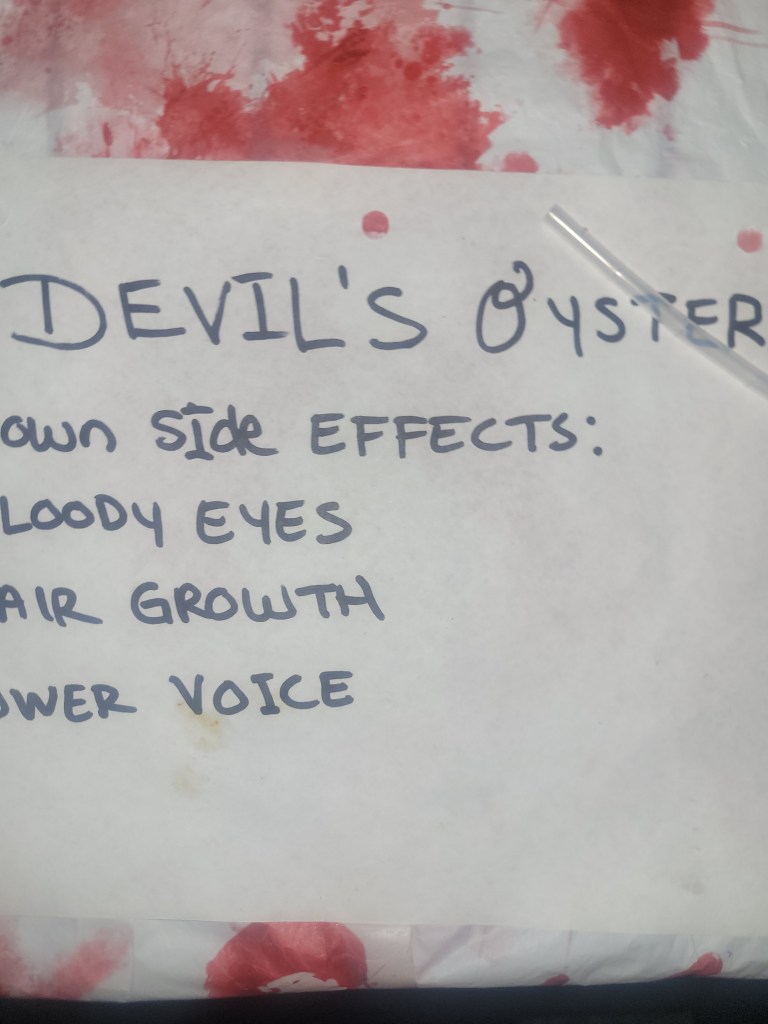 DEVIL'S OYSTER
own SIde EFFECTS:
LOODY EYES
AIR GROWTH
OWER VOICE